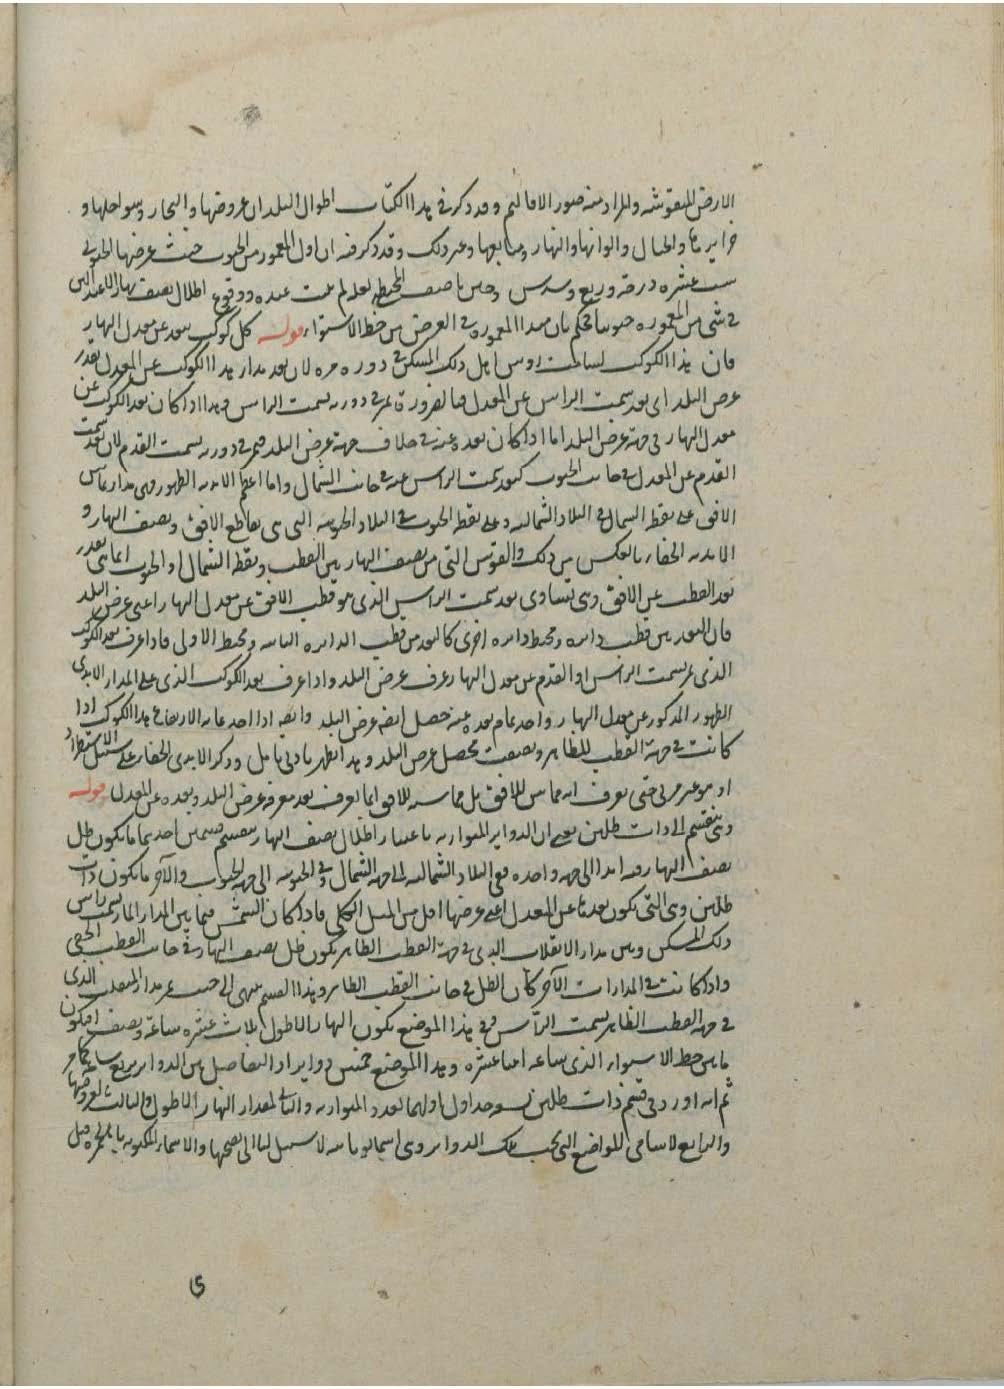 الارض المنقوشة والمراد منه صور الاقاليم وقد ذكر في هذا الكتاب اطوال البلدان وعروضها والبحار وسواحلها و
جزايرها والجبال والوانها والانهار ومنابعها وغير ذلك وقد ذكر فيه ان اول المعمور من الجنوب حيث عرضها الجنوبي
ست عشرة درجة وربع وسدس وحين ما صنف المجسطي بعد لم يثبت عنده وقوع اظلال نصف نهار الاعتدالين
في شئ من المعمورة جنوبيا فحكم بان مبدا المعمورة في العرض من خط الاستواء قوله كل كوكب بعده عن معدل النهار
فان هذا الكوكب يسامت رؤس اهل ذلك المسكن في دورة مرة لان بعد مدار هذا الكوكب عن المعدل بقدر
عرض البلد اي بعد سمت الراس عن المعدل فبالضرورة يمر في دورته بسمت الراس وهذا اذا كان بعد الكوكب عن
معدل النهار في جهة عرض البلد اما اذا كان بعده عنه في خلاف جهة عرض البلد فيمر في دورته بسمت القدم لان بعد سمت
القدم عن المعدل في جانب الجنوب كبعد سمت الراس عنه في جانب الشمال واما اعظم الابدية الظهور فهي مدار يماس
الافق على نقطة الشمال في البلاد الشمالية وعلى نقطة الجنوب في البلاد الجنوبية التي هي تقاطع الافق ونصف النهار و
الابدية الخفاء بالعكس من ذلك والقوس التي من نصف النهار بين القطب ونقطة الشمال او الجنوب انما هي بقدر
بعد القطب عن الافق وهي تساوي بعد سمت الراس الذي هو قطب الافق عن معدل النهار اعني عرض البلد
فان البعد بين قطب دائرة ومحيط دائرة اخرى كالبعد من قطب الدائرة الثانية ومحيط الاولى فاذا عرف بعد الكوكب
الذي يمر بسمت الراس او القدم عن معدل النهار عرف عرض البلد واذا عرف بعد الكوكب الذي على المدار الابدي
الظهور المذكور عن معدل النهار واخذ تمام بعده عنه حصل ايضا عرض البلد وايضا اذا اخذ غاية الارتفاع هذا الكوكب اذا
كانت في جهة القطب الظاهر ونصفت يحصل عرض البلد وهذا يظهر بادنى تامل وذكر الابدي الخفاء على سبيل الاستطراد
اذ هو غير مرئي حتى يعرف انه مماس للافق بل مماسة للافق انما يعرف بعد معرفة عرض البلد وبعده عن المعدل قوله
وهي ينقسم الى ذات ظلين يعني ان الدواير المتوازية باعتبار اظلال نصف النهار ينقسم قسمين احديهما ما يكون ظل
نصف النهار فيه ابدا الى جهة واحدة ففي البلاد الشمالية الى جهة الشمال وفي الجنوبية الى جهة الجنوب والآخر ما يكون ذات
ظلين وهي التي يكون بعدها عن المعدل اعني عرضها اقل من الميل الكلي فاذا كان الشمس فيما بين المدار المار بسمت راس
ذلك المسكن وبين مدار الانقلاب الذي في جهة القطب الظاهر يكون ظل نصف النهار في جانب القطب الخفي
واذا كانت في المدارات الآخر كان الظل في جانب القطب الظاهر وهذا القسم ينتهي الى حيث يمر مدار المنقلب الذي
في جهة القطب الظاهر بسمت الرأس وفي هذا الموضع يكون النهار الاطول ثلاث عشرة ساعة ونصف فيكون
ما بين خط الاستواء الذي ساعاته اثنا عشرة وهذا الموضع خمس دواير اذ التفاضل بين الدواير بربع ساعة كما مر
ثم انه اورد في قسم ذات ظلين جداول اولها لعدد المتوازية والثاني لمقدار النهار الاطول والثالث لعروضها
والرابع لاسامي المواضع التي تحت تلك الدواير وهي اسماء يونانية لا سبيل لنا الى تصحيحها والاسماء المكتوبة بالحمرة قبل